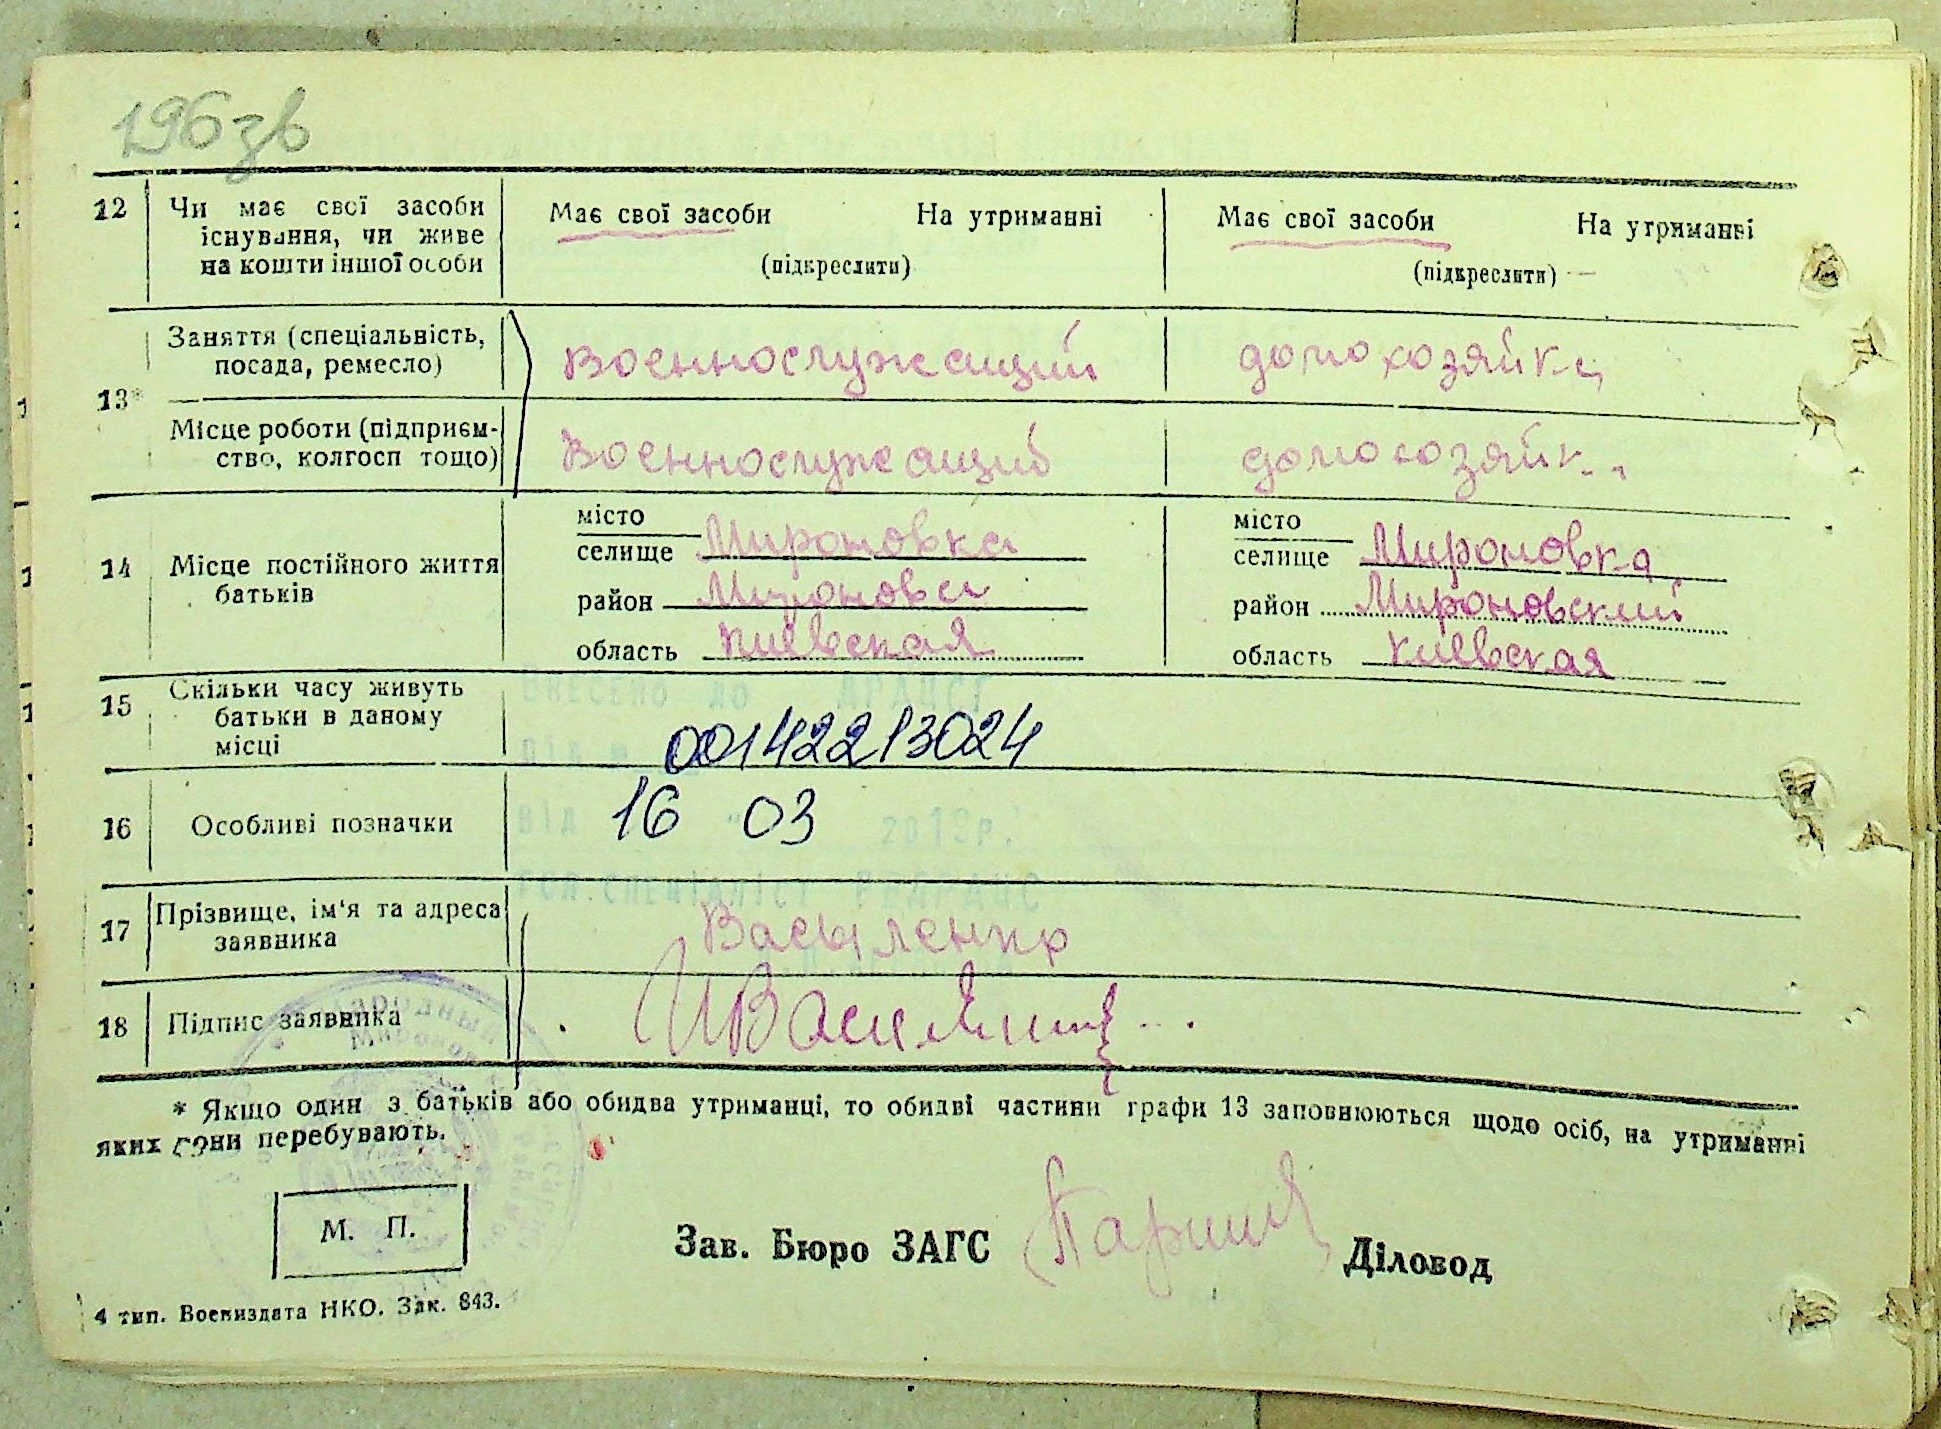 196 зв
12 Чи має свої засоби існування, чи живе на кошти іншої особи
Має свої засоби На утриманні
(підкреслити)
Має свої засоби На утриманні
(підкреслити)
13*
Заняття (спеціальність, посада, ремесло)
военнослужащий
домохозяйка
Місце роботи (підприєм-
ство, колгосп тощо)
военнослужащий
домохозяйка
14 Місце постійного життя батьків
місто
селище Мироновка
район
область Киевская
місто
селище Мироновка
район Мироновский
область Киевская
15 Скільки часу живуть батьки в даному місці
Внесено до ДРАЦСГ
00142213024
16 Особливі позначки
Від 16 03 2019р.
17 Прізвище, ім'я та адреса заявника
18 Підпис заявника
* Якщо один з батьків або обидва утриманці, то обидві частини графи 13 заповнюються щодо осіб, на утриманні
яких вони перебувають.
М. П.
Зав. Бюро ЗАГС
Діловод
4 тип. Воениздата НКО. Зак. 843.